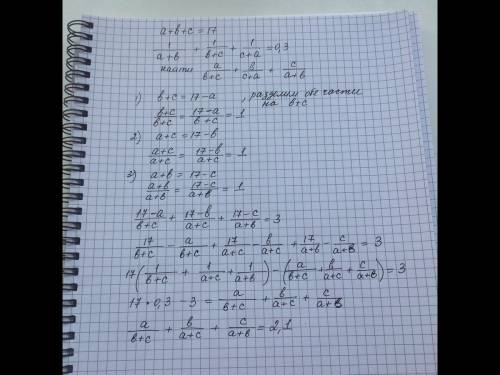 a+b+c=17
1/(a+b) + 1/(b+c) + 1/(c+a) = 0,3
найти a/(b+c) + b/(c+a) + c/(a+b)
1) b+c=17-a , разделим обе части на b+c
(b+c)/(b+c) = (17-a)/(b+c) = 1
2) a+c=17-b
(a+c)/(a+c) = (17-b)/(a+c) = 1
3) a+b=17-c
(a+b)/(a+b) = (17-c)/(a+b) = 1
(17-a)/(b+c) + (17-b)/(a+c) + (17-c)/(a+b) = 3
17/(b+c) - a/(b+c) + 17/(a+c) - b/(a+c) + 17/(a+b) - c/(a+b) = 3
17(1/(b+c) + 1/(a+c) + 1/(a+b)) - (a/(b+c) + b/(a+c) + c/(a+b)) = 3
17•0,3-3 = a/(b+c) + b/(a+c) + c/(a+b)
a/(b+c) + b/(a+c) + c/(a+b) = 2,1